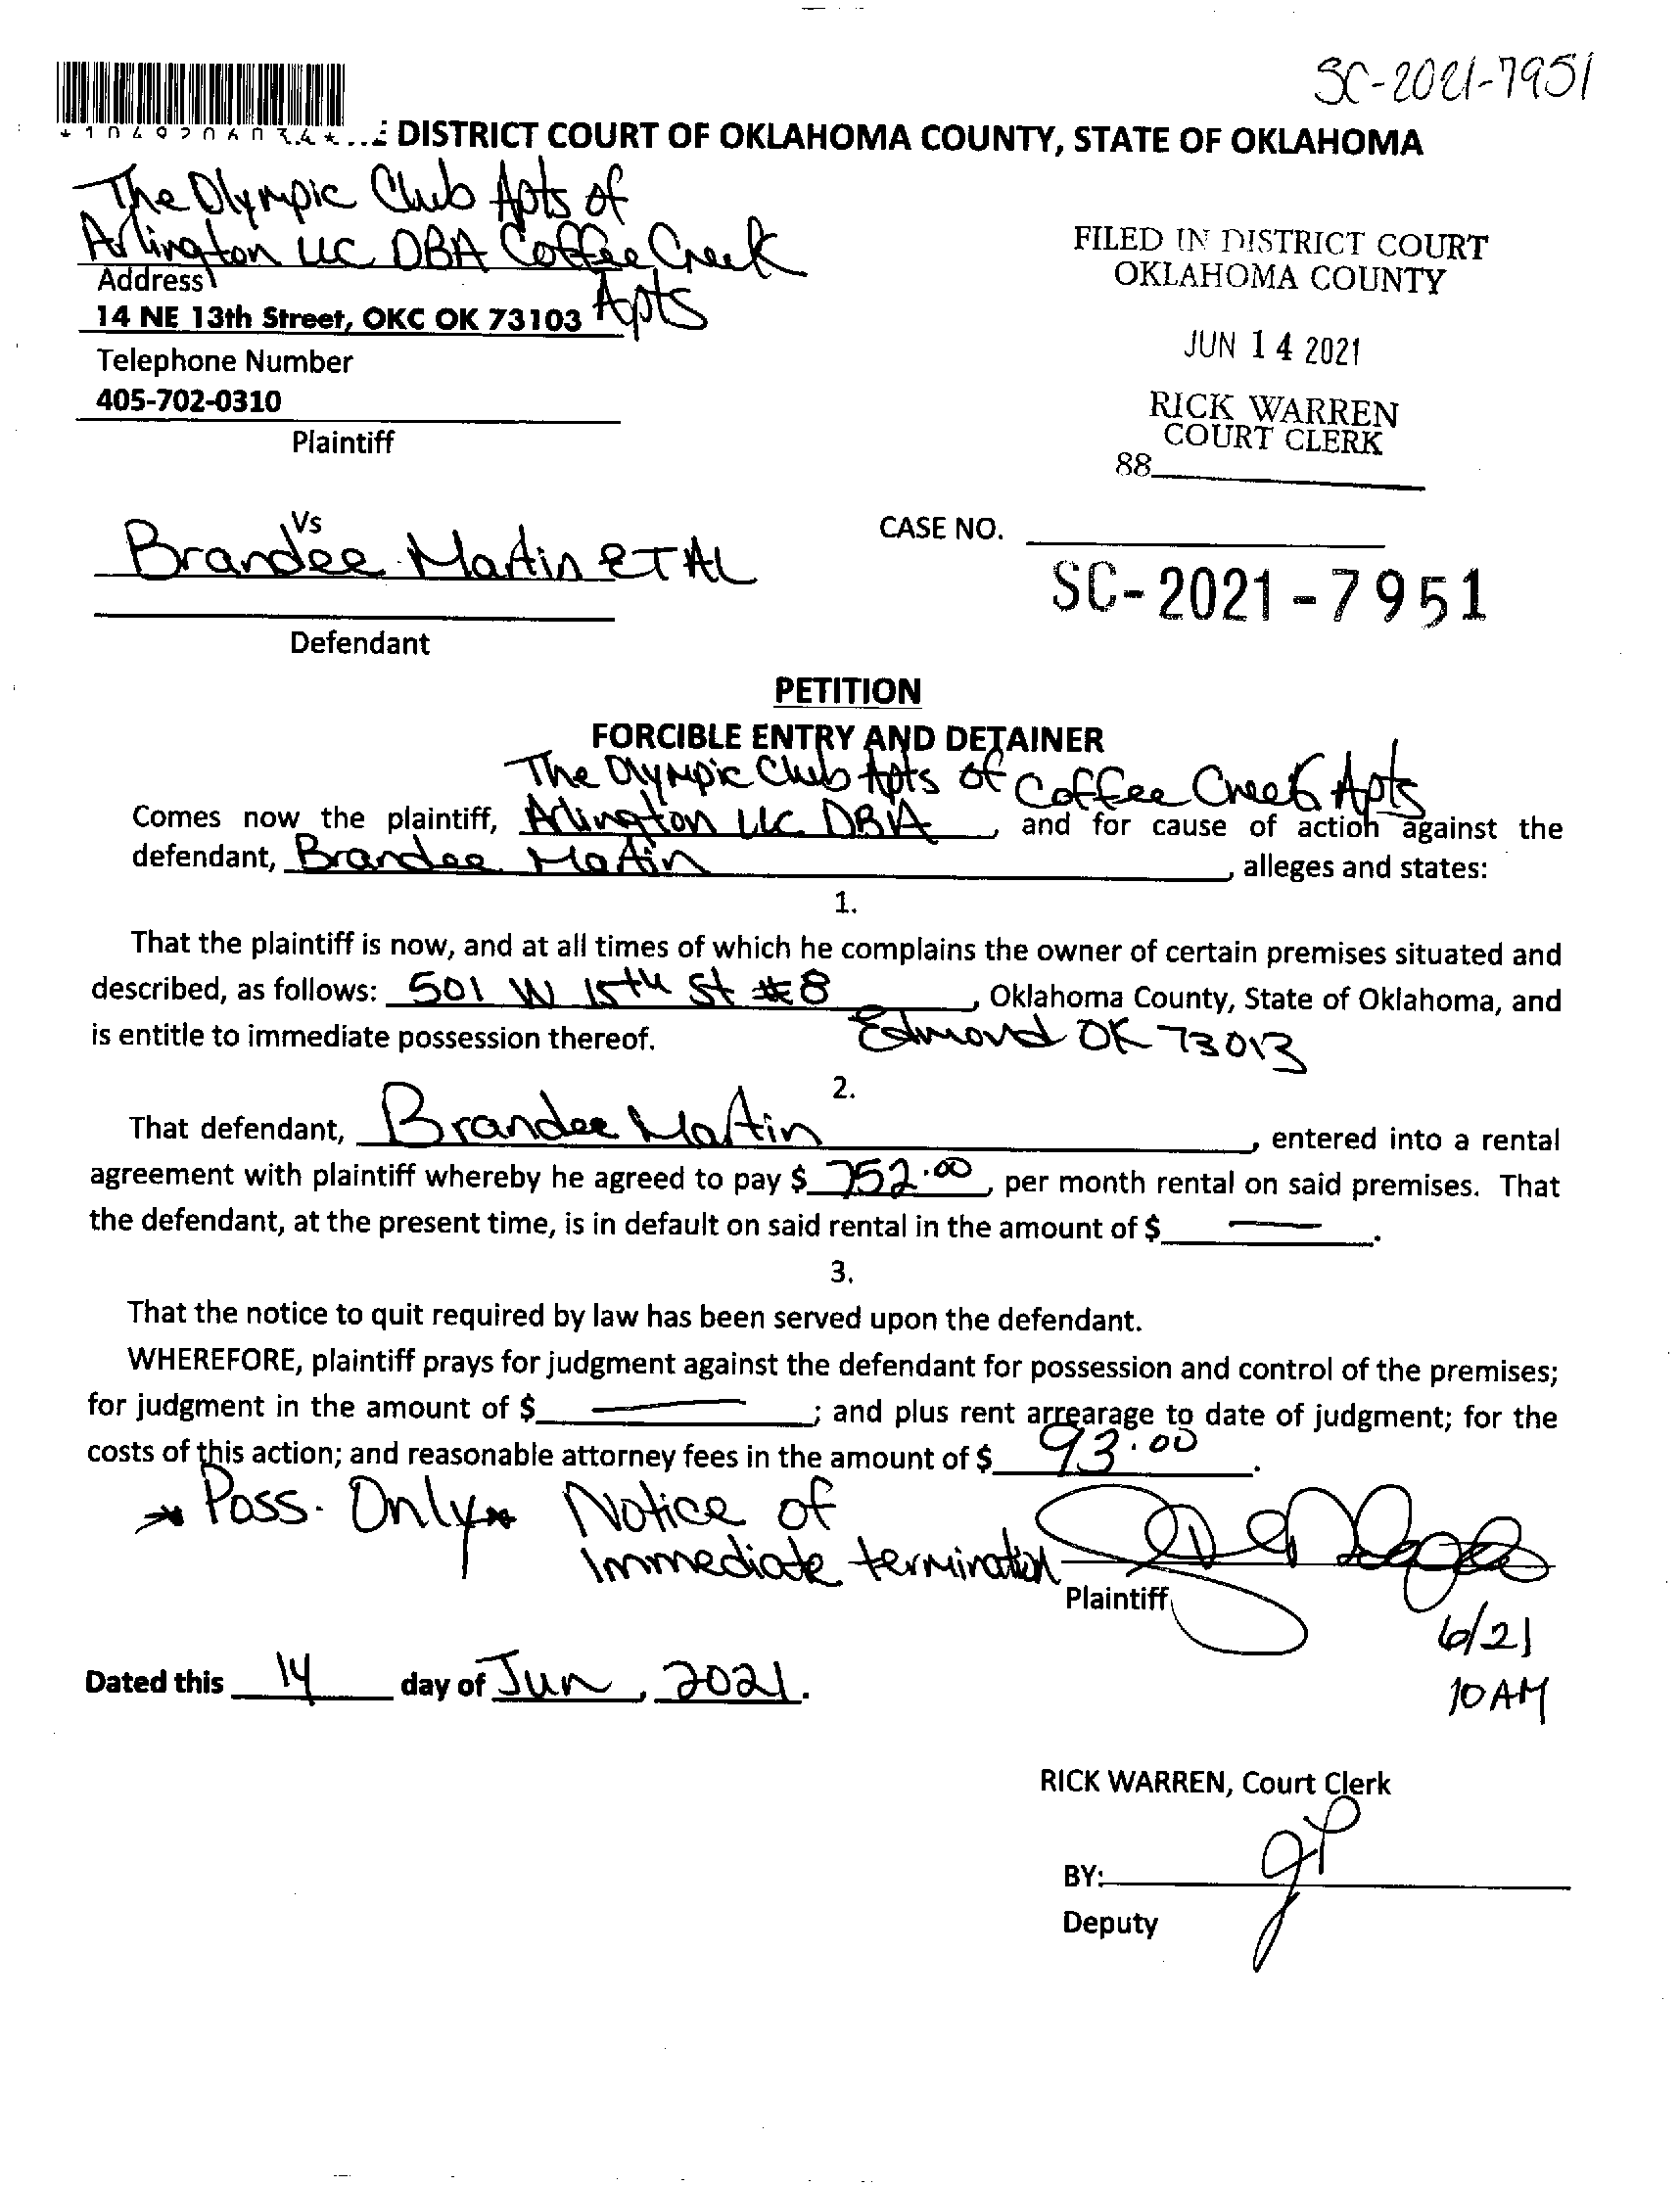 SC-2021-7951
DISTRICT COURT OF OKLAHOMA COUNTY, STATE OF OKLAHOMA
The Olympic Club Apts of
Arlington LLC DBA Coffee Creek
Apts
Address
14 NE 13th Street, OKC OK 73103
Telephone Number
405-702-0310
Plaintiff
FILED IN DISTRICT COURT
OKLAHOMA COUNTY
JUN 14 2021
RICK WARREN
COURT CLERK
88
Vs
Brandee Martin ET AL
Defendant
CASE NO.
SC-2021-7951
PETITION
FORCIBLE ENTRY AND DETAINER
The Olympic Club Apts of Coffee Creek Apts
Comes now the plaintiff, Arlington LLC DBA, and for cause of action against the
defendant, Brandee Martin, alleges and states:
1.
That the plaintiff is now, and at all times of which he complains the owner of certain premises situated and
described, as follows: 501 W 15th St #8, Oklahoma County, State of Oklahoma, and
is entitle to immediate possession thereof. Edmond OK 73013
2.
That defendant, Brandee Martin, entered into a rental
agreement with plaintiff whereby he agreed to pay $ 752.00, per month rental on said premises. That
the defendant, at the present time, is in default on said rental in the amount of $ —.
3.
That the notice to quit required by law has been served upon the defendant.
WHEREFORE, plaintiff prays for judgment against the defendant for possession and control of the premises;
for judgment in the amount of $ —; and plus rent arrearage to date of judgment; for the
costs of this action; and reasonable attorney fees in the amount of $ 93.00.
* Poss. Only * Notice of
Immediate termination
Plaintiff
6/21
10 AM
Dated this 14 day of Jun, 2021.
RICK WARREN, Court Clerk
BY:
Deputy